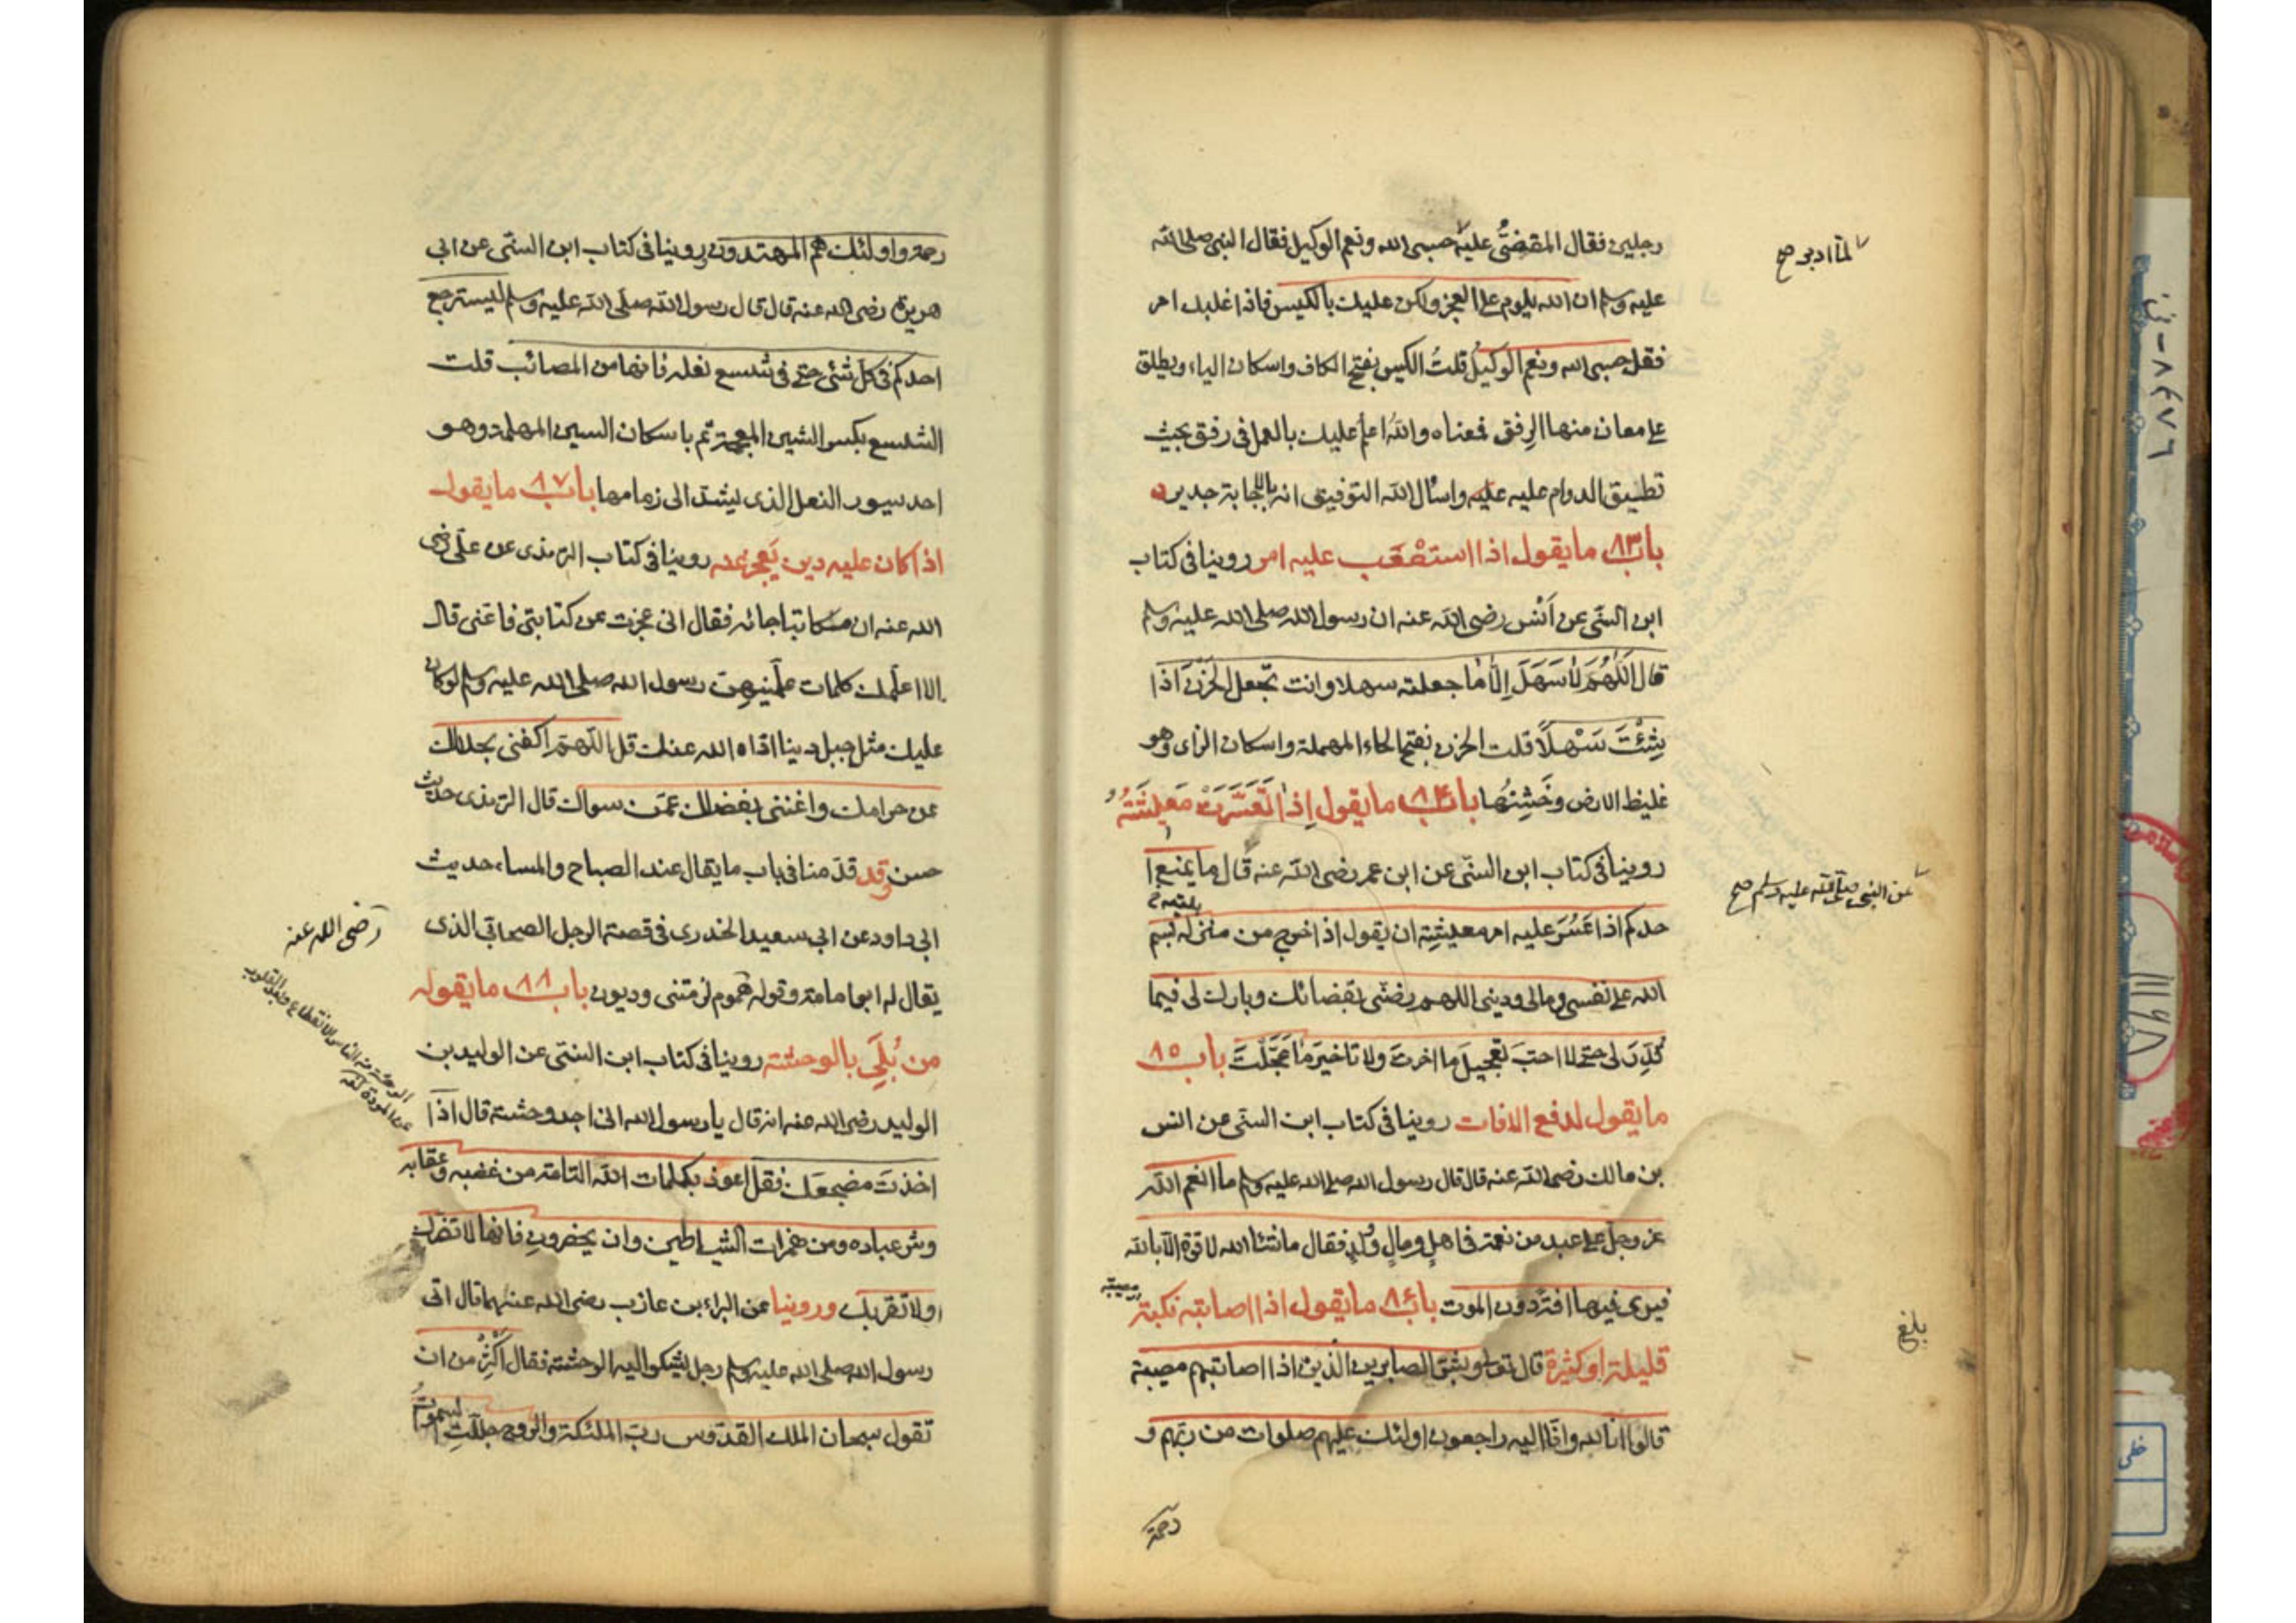 رجلين فقال المقضى عليه حسبى الله ونعم الوكيل فقال النبى صلى الله
لما ادبر صح
عليه وسلم ان الله يلوم على العجز ولكن عليك بالكيس فاذا غلبك امر
فقل حسبى الله ونعم الوكيل قلت الكيس بفتح الكاف واسكان الياء ويطلق
على معان منها الرفق فمعناه والله اعلم عليك بالعمل فى رفق بحيث
تطيق الدوام عليه عليه واسأل الله التوفيق انه بالاجابة جدير
باب ٨٣ ما يقول اذا استصعب عليه امر روينا فى كتاب
ابن السنى عن انس رضى الله عنه ان رسول الله صلى الله عليه وسلم
قال اللهم لا سهل الا ما جعلته سهلا وانت تجعل الحزن اذا
شئت سهلا قلت الحزن بفتح الحاء المهملة واسكان الزاى وهو
غليظ الارض وخشنها باب ٨٤ ما يقول اذا تعسرت معيشته
روينا فى كتاب ابن السنى عن ابن عمر رضى الله عنه قال ما يمنع ا
عن النبى صلى الله عليه وسلم صح
حدكم اذا عسر عليه امر معيشته ان يقول اذا خرج من منزله بسم
الله على نفسى ومالى ودينى اللهم رضنى بقضائك وبارك لى فيما
قدر لى حتى لا احب تعجيل ما اخرت ولا تاخير ما عجلت باب ٨٥
ما يقول لدفع الافات روينا فى كتاب ابن السنى عن انس
بن مالك رضى الله عنه قال قال رسول الله صلى الله عليه وسلم ما انعم الله
عز وجل على عبد من نعمة فى اهل ومال وولد فقال ما شاء الله لا قوة الا بالله
فيرى فيها افة دون الموت باب ٨٦ ما يقول اذا اصابته نكبة
قليلة او كثيرة قال تعالى وبشر الصابرين الذين اذا اصابتهم مصيبة
بلغ
قالوا انا لله وانا اليه راجعون اولئك عليهم صلوات من ربهم و
رحمة
رحمة واولئك هم المهتدون روينا فى كتاب ابن السنى عن ابى
هريرة رضى الله عنه قال قال رسول الله صلى الله عليه وسلم ليسترجع
احدكم فى كل شئ حتى فى شسع نعله فانها من المصائب قلت
الشسع بكسر الشين المعجمة ثم باسكان السين المهملة وهو
احد سيور النعل الذى يشد الى زمامها باب ٨٧ ما يقول
اذا كان عليه دين يعجز عنه روينا فى كتاب الترمذى عن على رضى
الله عنه ان مكاتبا جائه فقال انى عجزت عن كتابتى فاعنى قال
الا اعلمك كلمات علمنيهن رسول الله صلى الله عليه وسلم لو كان
عليك مثل جبل دينا اداه الله عنك قل اللهم اكفنى بحلالك
عن حرامك واغننى بفضلك عمن سواك قال الترمذى حديث
حسن وقد قدمنا فى باب ما يقال عند الصباح والمساء حديث
ابى داود عن ابى سعيد الخدرى فى قصة الرجل الصحابى الذى
رضى الله عنه
يقال له ابو امامة وقوله هموم لزمتنى وديون باب ٨٨ ما يقوله
من بلى بالوحشة روينا فى كتاب ابن السنى عن الوليد بن
الوليد رضى الله عنه انه قال يا رسول الله انى اجد وحشة قال اذا
اخذت مضجعك فقل اعوذ بكلمات الله التامة من غضبه وعقابه
وشر عباده ومن همزات الشياطين وان يحضرون فانها لا تضرك
او لا تقربك وروينا عن البراء بن عازب رضى الله عنهما قال اتى
رسول الله صلى الله عليه وسلم رجل يشكو اليه الوحشة فقال اكثر من ان
تقول سبحان الملك القدوس رب الملئكة والروح جللت السموات